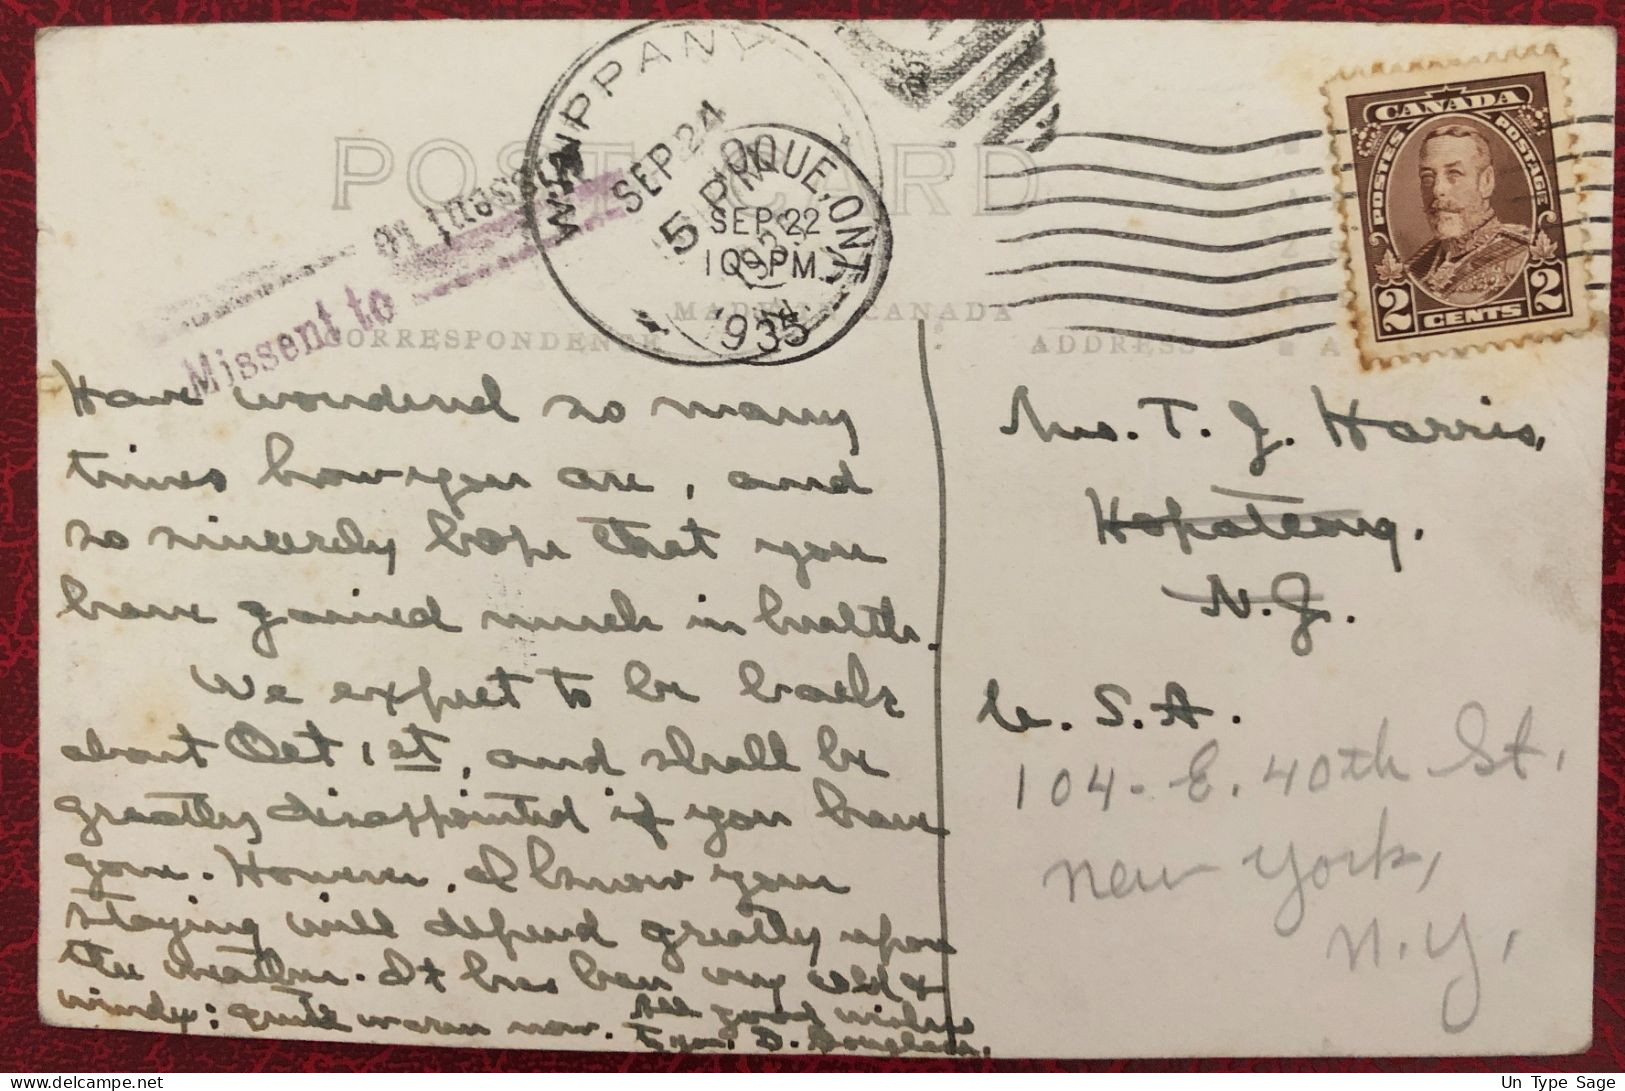 POST CARD
WHIPPANY
SEP 24
5 PM
OQUE, ONT.
SEP 22
10 PM
1935
Missent to
Missent to
MADE IN CANADA
CORRESPONDENCE
ADDRESS
CANADA
POSTES POSTAGE
2 CENTS 2
Have wondered so many
times how you are, and
so sincerely hope that you
have gained much in health.
We expect to be back
about Oct 1st, and shall be
greatly disappointed if you have
gone. However, I know your
staying will depend greatly upon
the weather. It has been very cold &
windy; quite warm now. All good wishes
from D. Douglass.
Mrs. T. J. Harris,
Hopatcong,
N.J.
U.S.A.
104-E. 40th St,
New York,
N.Y,
Un Type Sage